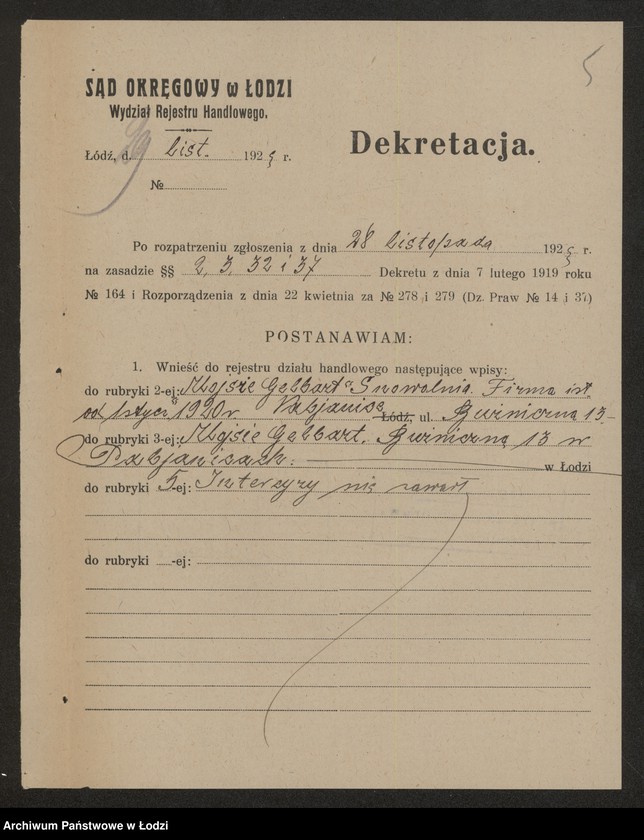 5
SĄD OKRĘGOWY w ŁODZI
Wydział Rejestru Handlowego.
Łódź, d. 29 list. 1925 r.
Dekretacja.
№
Po rozpatrzeniu zgłoszenia z dnia 28 listopada 1925 r.
na zasadzie §§ 2, 3, 32 i 37 Dekretu z dnia 7 lutego 1919 roku
№ 164 i Rozporządzenia z dnia 22 kwietnia za № 278 i 279 (Dz. Praw № 14 i 37)
POSTANAWIAM:
1. Wnieść do rejestru działu handlowego następujące wpisy:
do rubryki 2-ej: „Mojsie Gelbart" Snowalnia. Firma ist.
od 1 stycz. 1920 r Pabjanice Łódź, ul. 13.
do rubryki 3-ej: Mojsie Gelbart. 13 w
Pabjanicach. w Łodzi
do rubryki 5-ej: Intercyzy nie zawarł
do rubryki -ej:
Archiwum Państwowe w Łodzi